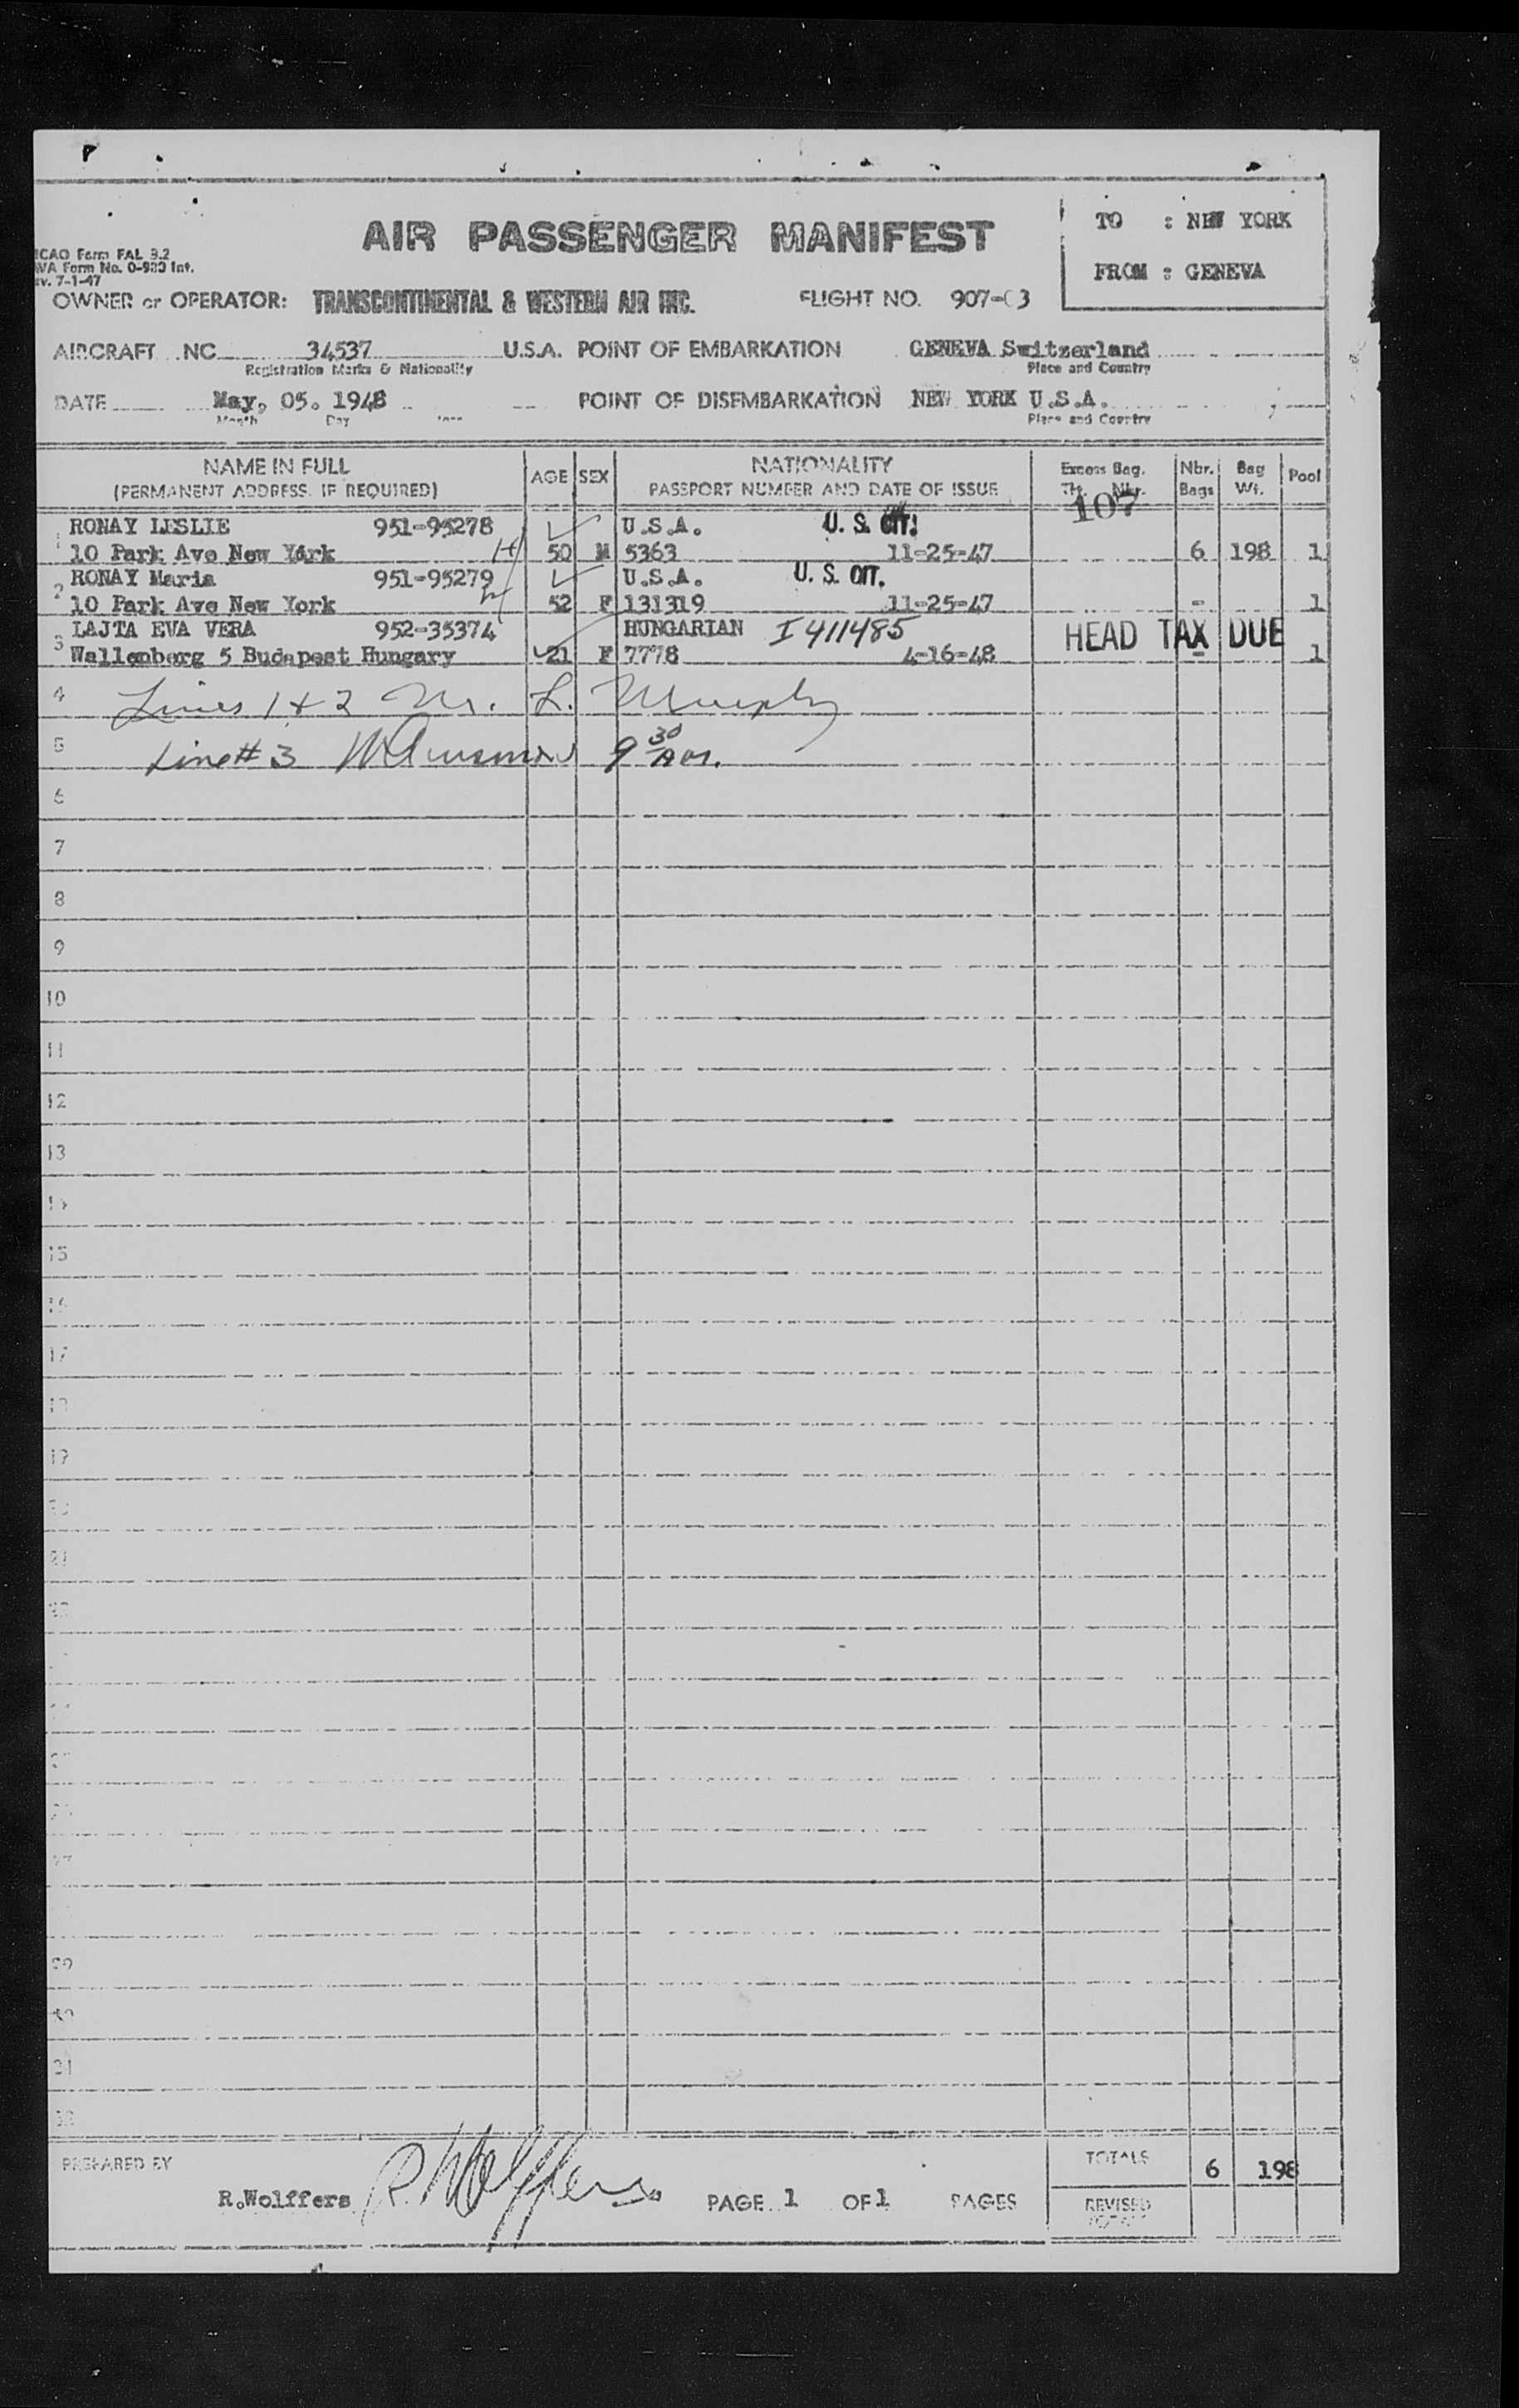 TO : NEW YORK
AIR PASSENGER MANIFEST
ICAO Form FAL 3.2
WA Form No. 0-983 Int.
FROM : GENEVA
ev. 7-1-47
OWNER or OPERATOR: TRANSCONTINENTAL & WESTERN AIR INC. FLIGHT NO. 907-03
AIRCRAFT NC 34537 U.S.A. POINT OF EMBARKATION GENEVA Switzerland
Registration Marks & Nationality Place and Country
DATE May, 05. 1948 POINT OF DISEMBARKATION NEW YORK U.S.A.
Month Day Place and Country
NAME IN FULL AGE SEX NATIONALITY Excess Bag. Nbr. Bag Pool
(PERMANENT ADDRESS, IF REQUIRED) PASSPORT NUMBER AND DATE OF ISSUE Tkt. Nbr. Bags Wt.
107
1 RONAY LESLIE 951-95278 U.S.A. U. S. CIT.
10 Park Ave New York 50 M 5363 11-25-47 6 198 1
2 RONAY Maria 951-95279 U.S.A. U. S. CIT.
10 Park Ave New York 52 F 131319 11-25-47 - 1
3 LAJTA EVA VERA 952-35374 HUNGARIAN I 411485 HEAD TAX DUE
Wallenberg 5 Budapest Hungary 21 F 7778 4-16-48 - 1
4 Lines 1 & 2 M. L. Murphy
5 Line # 3 9 30
6
7
8
9
10
11
12
13
15
16
17
19
21
31
PREPARED BY TOTALS 6 198
R.Wolffers R. Wolffers PAGE 1 OF 1 PAGES REVISED